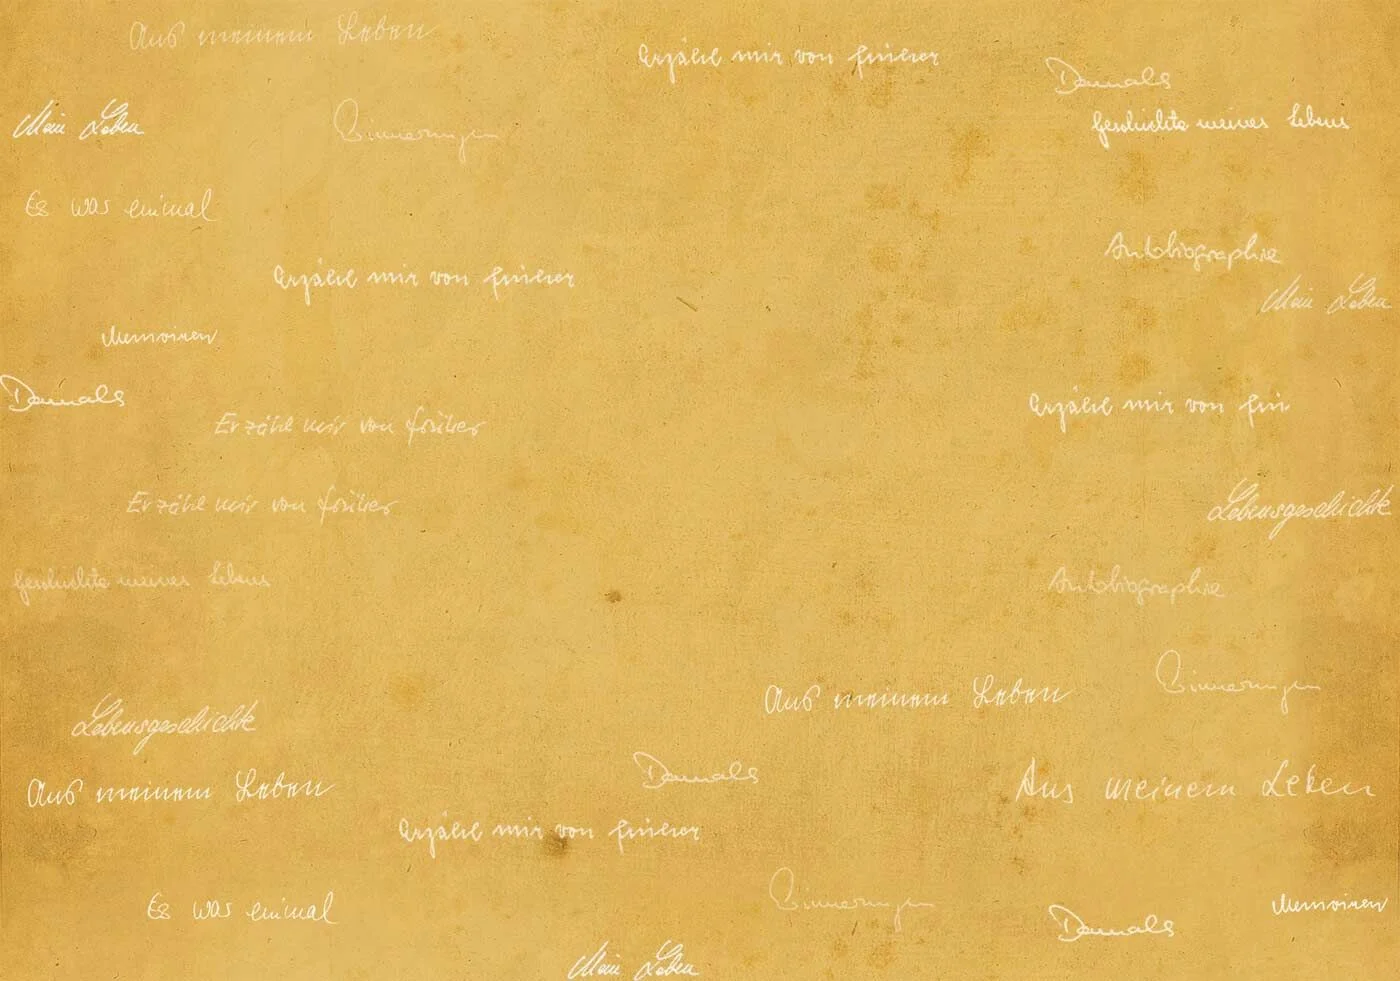 Aus meinem Leben
Erzähl mir von früher
Damals
Mein Leben
Erinnerungen
Geschichte meines Lebens
Es was einmal
Autobiographie
Erzähl mir von früher
Mein Leben
Memoiren
Damals
Erzähl mir von früher
Erzähl mir von frü
Erzähl mir von früher
Lebensgeschichte
Geschichte meines Lebens
Autobiographie
Erinnerungen
Aus meinem Leben
Lebensgeschichte
Damals
Aus meinem Leben
Aus meinem Leben
Erzähl mir von früher
Erinnerungen
Es was einmal
Memoiren
Damals
Mein Leben